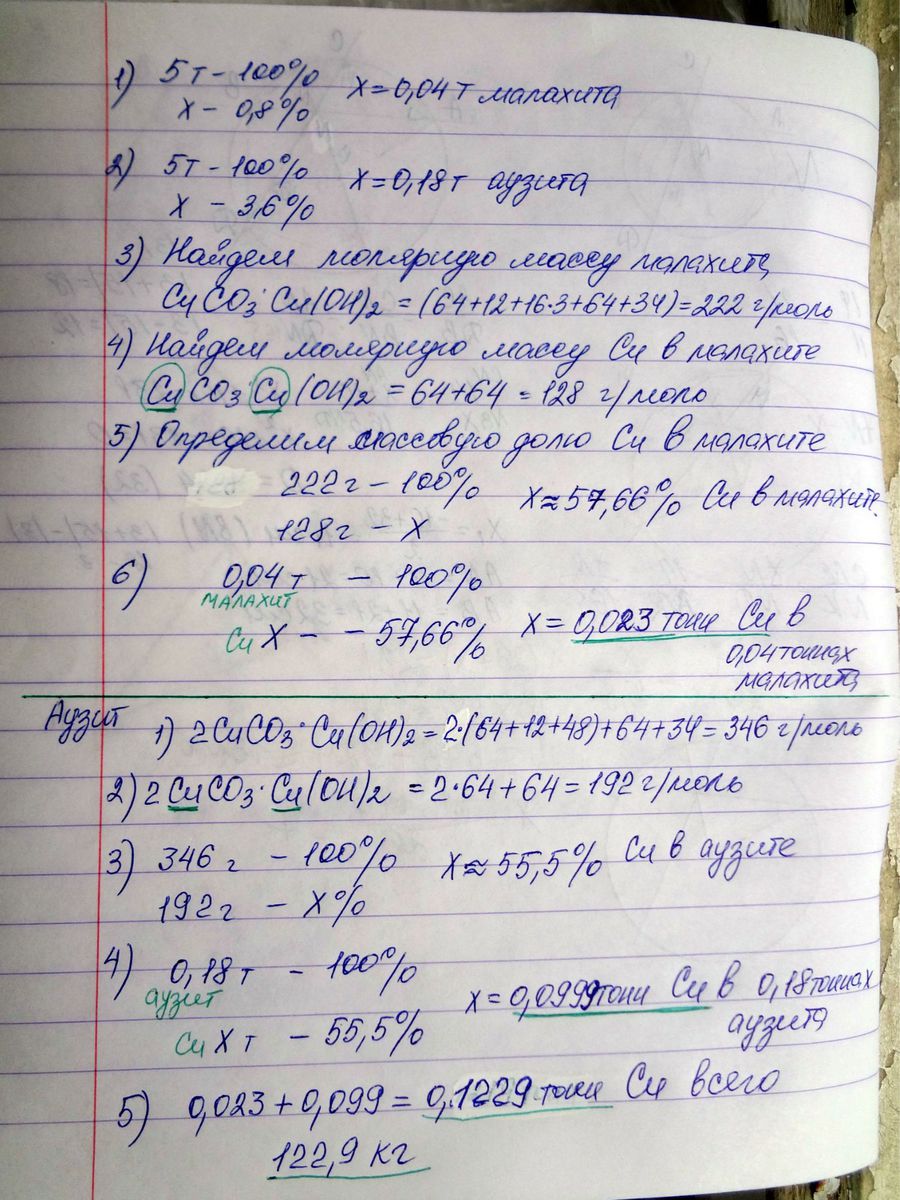 1) 5т - 100% x = 0,04 т малахита
x - 0,8%
2) 5т - 100% x = 0,18 т аузита
x - 3,6%
3) Найдем молярную массу малахита
CuCO₃·Cu(OH)₂ = (64+12+16·3+64+34) = 222 г/моль
4) Найдем молярную массу Cu в малахите
CuCO₃·Cu(OH)₂ = 64+64 = 128 г/моль
5) Определим массовую долю Cu в малахите
222г - 100% x ≈ 57,66% Cu в малахите.
128г - x
6) 0,04 т - 100%
малахит
Cu X - - 57,66% x = 0,023 тонн Cu в
0,04 тоннах
малахита
Аузит
1) 2CuCO₃·Cu(OH)₂ = 2·(64+12+48)+64+34 = 346 г/моль
2) 2CuCO₃·Cu(OH)₂ = 2·64+64 = 192 г/моль
3) 346 г - 100% x ≈ 55,5% Cu в аузите
192 г - x%
4) 0,18 т - 100%
аузит
Cu X т - 55,5% x = 0,0999 тонн Cu в 0,18 тоннах
аузита
5) 0,023 + 0,099 = 0,1229 тонн Cu всего
122,9 кг